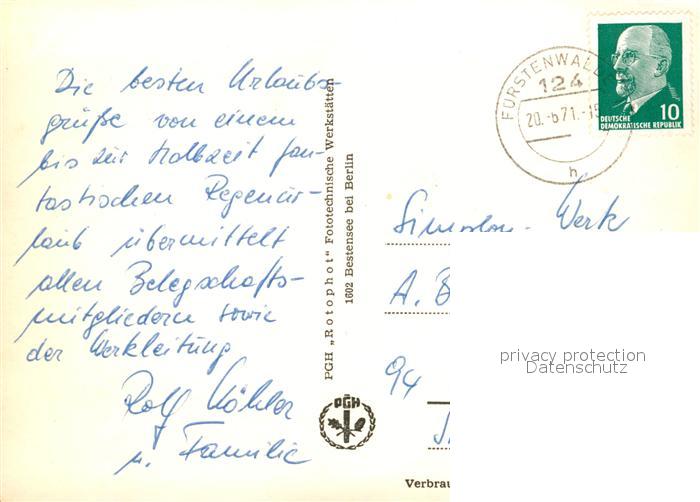 Die besten Urlaubs-
grüße von einem
bis zur Halbzeit fan-
tastischen Regenur-
laub übermittelt
allen Belegschafts-
mitgliedern sowie
der Werkleitung
Rolf Köhler
u. Familie
PGH „Rotophot" Fototechnische Werkstätten
1602 Bestensee bei Berlin
PGH
FÜRSTENWALDE
124
20.-6.71.-15
h
10
DEUTSCHE
DEMOKRATISCHE REPUBLIK
Simson-Werk
A. B
94
Verbrau
privacy protection
Datenschutz